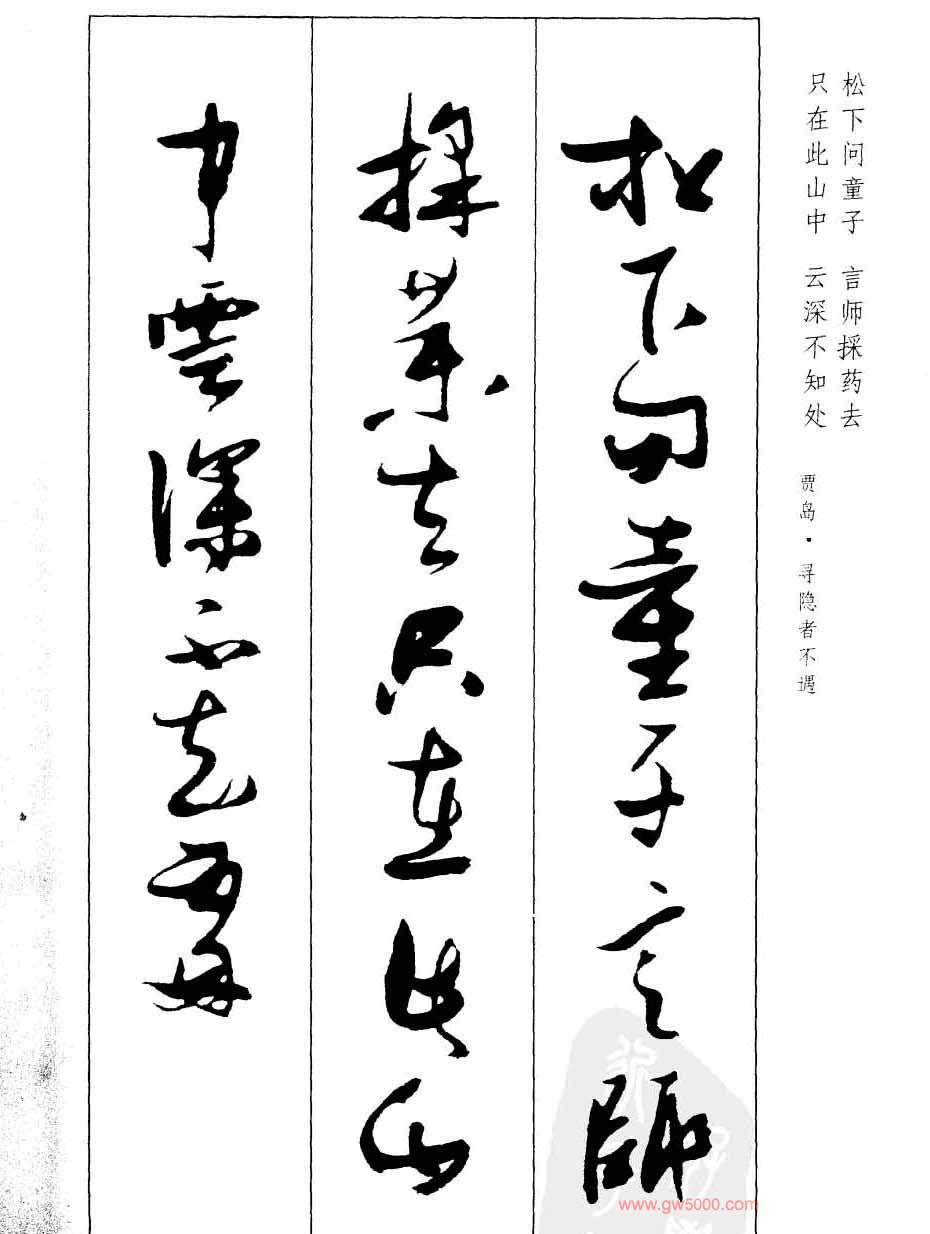 松下问童子 言师採药去
只在此山中 云深不知处
贾岛·寻隐者不遇
松下問童子言師
採藥去只在此山
中雲深不知處
www.gw5000.com